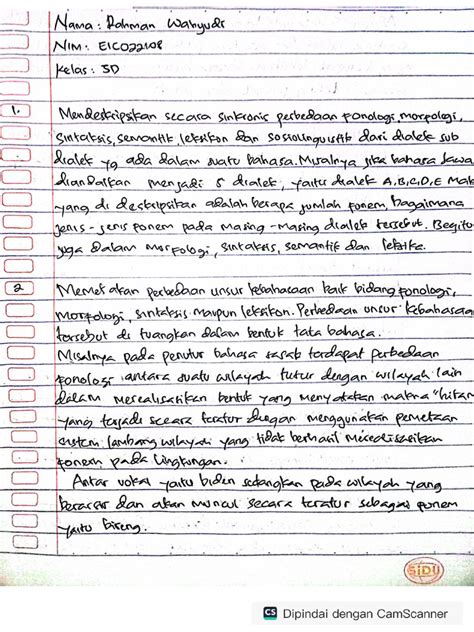 Nama : Rahman Wahyudi
NIM : E1C022108
Kelas : 5D
1. Mendeskripsikan secara sinkronic perbedaan fonologi, morfologi,
sintaksis, semantik, leksikon dan sosiolinguistik dari dialek sub
dialek yg ada dalam suatu bahasa. Misalnya jika bahasa Jawa
diandaikan menjadi 5 dialek, yaitu dialek A,B,C,D,E Mak
yang di deskripsikan adalah berapa jumlah fonem, bagaimana
jenis-jenis fonem pada masing-masing dialek tersebut. Begitu
juga dalam morfologi, sintaksis, semantik dan
2. Memetakan perbedaan unsur kebahasaan baik bidang fonologi,
morfologi, sintaksis maupun leksikon. Perbedaan unsur kebahasaan
tersebut di tuangkan dalam bentuk tata bahasa.
Misalnya pada penutur bahasa sasak terdapat perbedaan
fonologi antara suatu wilayah tutur dengan wilayah lain
dalam merealisasikan bentuk yang menyatakan makna "hitam
yang terjadi secara teratur dengan menggunakan pemetaan
sistem lambang wilayah yang tidak berhasil merealisasikan
fonem pada lingkungan.
Antar vokal yaitu sedangkan pada wilayah yang
dan akan muncul secara teratur sebagai fonem
yaitu bireng.
SIDU
CS Dipindai dengan CamScanner